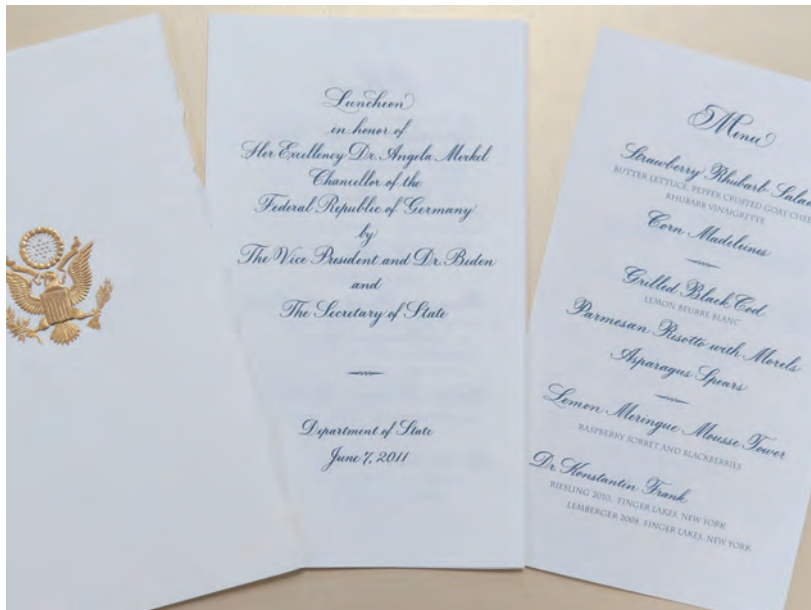 Luncheon
in honor of
Her Excellency Dr. Angela Merkel
Chancellor of the
Federal Republic of Germany
by
The Vice President and Dr. Biden
and
The Secretary of State
Department of State
June 7, 2011
Menu
Strawberry Rhubarb Salad
BUTTER LETTUCE, PEPPER CRUSTED GOAT CHEE
RHUBARB VINAIGRETTE
Corn Madeleines
Grilled Black Cod
LEMON BEURRE BLANC
Parmesan Risotto with Morels
Asparagus Spears
Lemon Meringue Mousse Tower
RASPBERRY SORBET AND BLACKBERRIES
Dr. Konstantin Frank
RIESLING 2010, FINGER LAKES, NEW YORK
LEMBERGER 2008, FINGER LAKES, NEW YORK